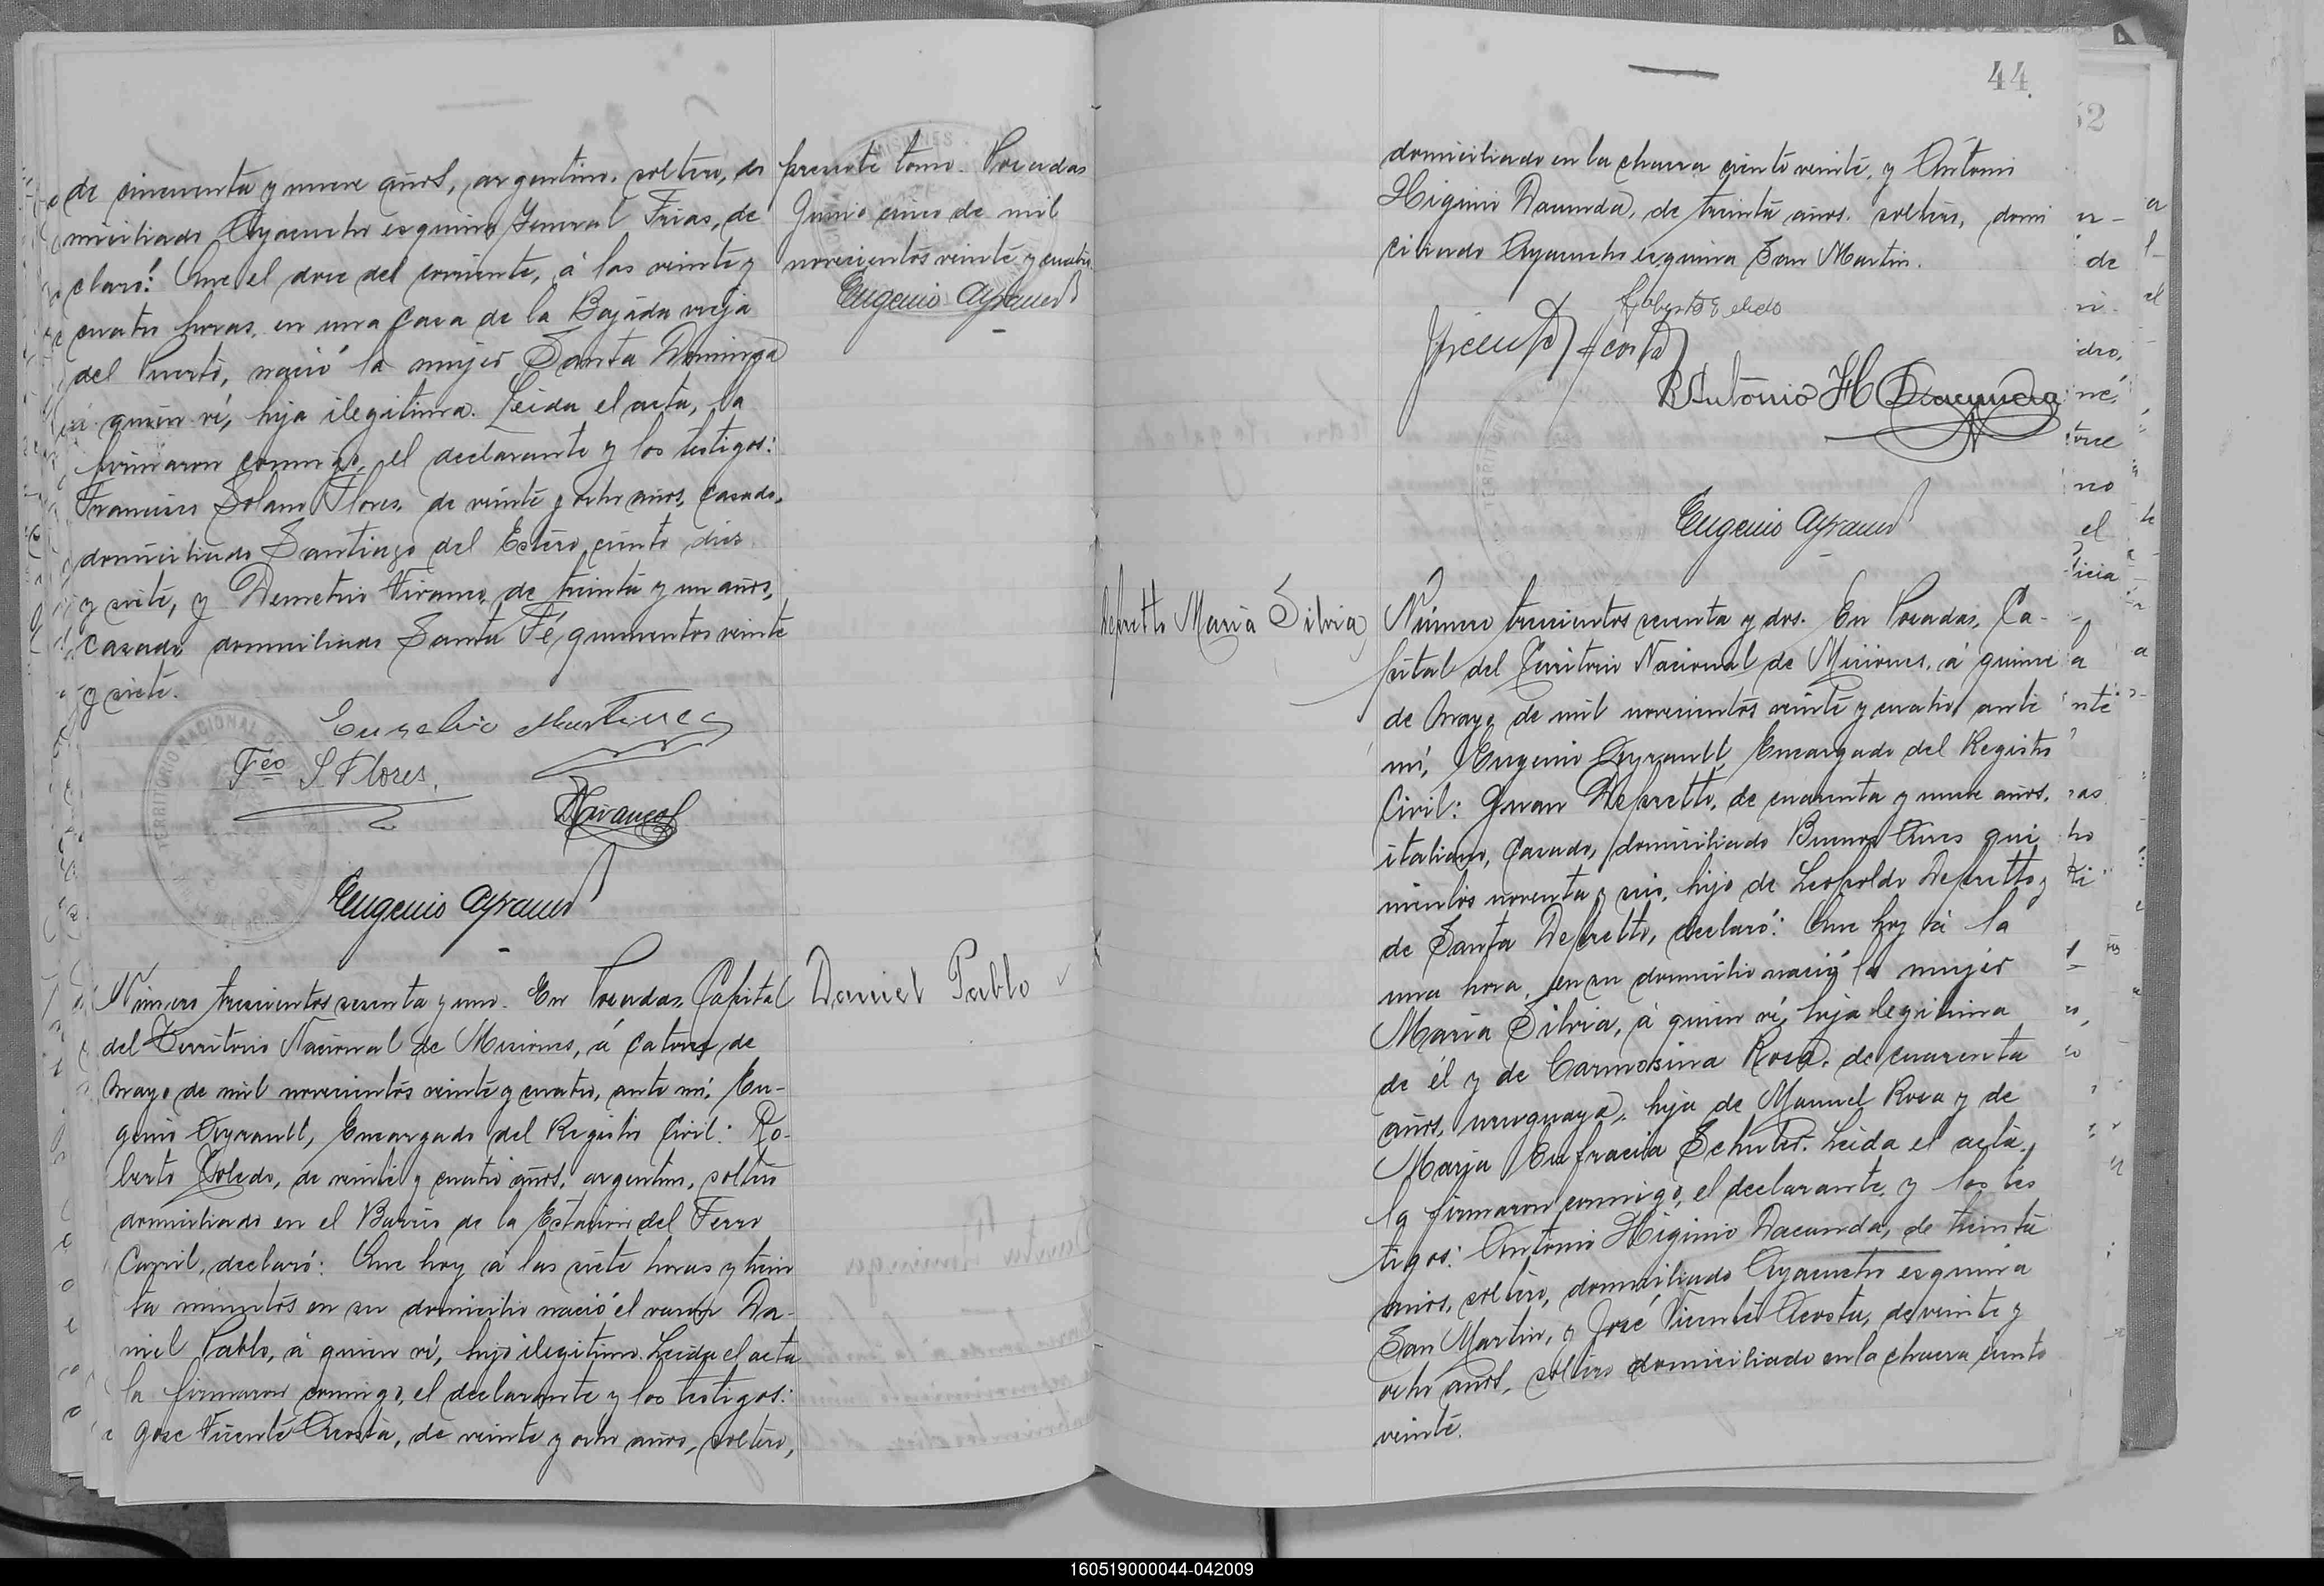 de cincuenta y nueve años, argentino, soltero, do
miciliado Ayacucho esquina General Frias, de
claró: Que el doce del corriente, á las veinte y
cuatro horas, en una casa de la Bajada vieja
del Puerto, nació la mujer Santa Dominga
á quien ví, hija ilegitima. Leida el acta, la
firmaron conmigo, el declarante y los testigos:
Francisco Solano Flores, de veinte y ocho años, casado,
domiciliado Santiago del Estero ciento diez
y siete, y Demetrio Vivanco, de treinta y un años,
casado, domiciliado Santa Fé, quinientos veinte
y siete.
Eusebio Martinez
Fco S. Flores.
DVivanco
Eugenio Ayrault
presente tomo. Posadas
Junio cinco de mil
novecientos veinte y cuatro.
Eugenio Ayrault
Daniel Pablo
Número trescientos sesenta y uno. En Posadas, Capital
del Territorio Nacional de Misiones, á catorce de
Mayo de mil novecientos veinte y cuatro, ante mí, Eu-
genio Ayrault, Encargado del Registro Civil: Ro-
berto Toledo, de veinte y cuatro años, argentino, soltero
domiciliado en el Barrio de la Estacion del Ferro
Carril, declaró: Que hoy á las siete horas y trein
ta minutos en su domicilio nació el varon Da-
niel Pablo, á quien ví, hijo ilegitimo. Leida el acta
la firmaron conmigo, el declarante y los testigos:
Jose Vicente Acosta, de veinte y ocho años, soltero,
44.
domiciliado en la chacra ciento veinte, y Antonio
Higinio Dacunda, de treinta años, soltero, domi
ciliado Ayacucho esquina San Martin.
Roberto Toledo
JVicente Acosta
Antonio H Dacunda
Eugenio Ayrault
Depretto Maria Silvia
Número trescientos sesenta y dos. En Posadas, Ca-
pital del Territorio Nacional de Misiones, á quince
de Mayo de mil novecientos veinte y cuatro, ante
mí, Eugenio Ayrault, Encargado del Registro
Civil: Juan Depretto, de cuarenta y nueve años,
italiano, casado, domiciliado Buenos Aires qui
nientos noventa y seis, hijo de Leopoldo Depretto y
de Santa Depretto, declaró: Que hoy á la
una hora, en su domicilio nació la mujer
Maria Silvia, á quien ví, hija legitima
de él y de Carmosina Rosa, de cuarenta
años, uruguaya, hija de Manuel Rosa y de
Maria Eufracia Schuler. Leida el acta,
la firmaron conmigo, el declarante, y los tes
tigos: Antonio Higinio Dacunda, de treinta
años, soltero, domiciliado Ayacucho esquina
San Martin, y José Vicente Acosta, de veinte y
ocho años, soltero domiciliado en la chacra ciento
veinte.
160519000044-042009